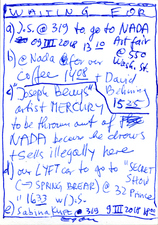 WAITING FOR
a) J.S. @ 319 to go to NADA
09 III 2018 13 10 Art fair
@ 550
Wash. St.
b) @ Nada @ for our
Coffee 1408 + David
c) "Joseph Beuys"
artist MERCURY 1525
to be thrown out of
NADA becau he draws
+ sells illegally here
d) our LYFT car to go to "SECRET
(→ SPRING BREAK) @ 32 SHOW
1633 w/ J.S.
e) Sabina @ 319 9 III 2018